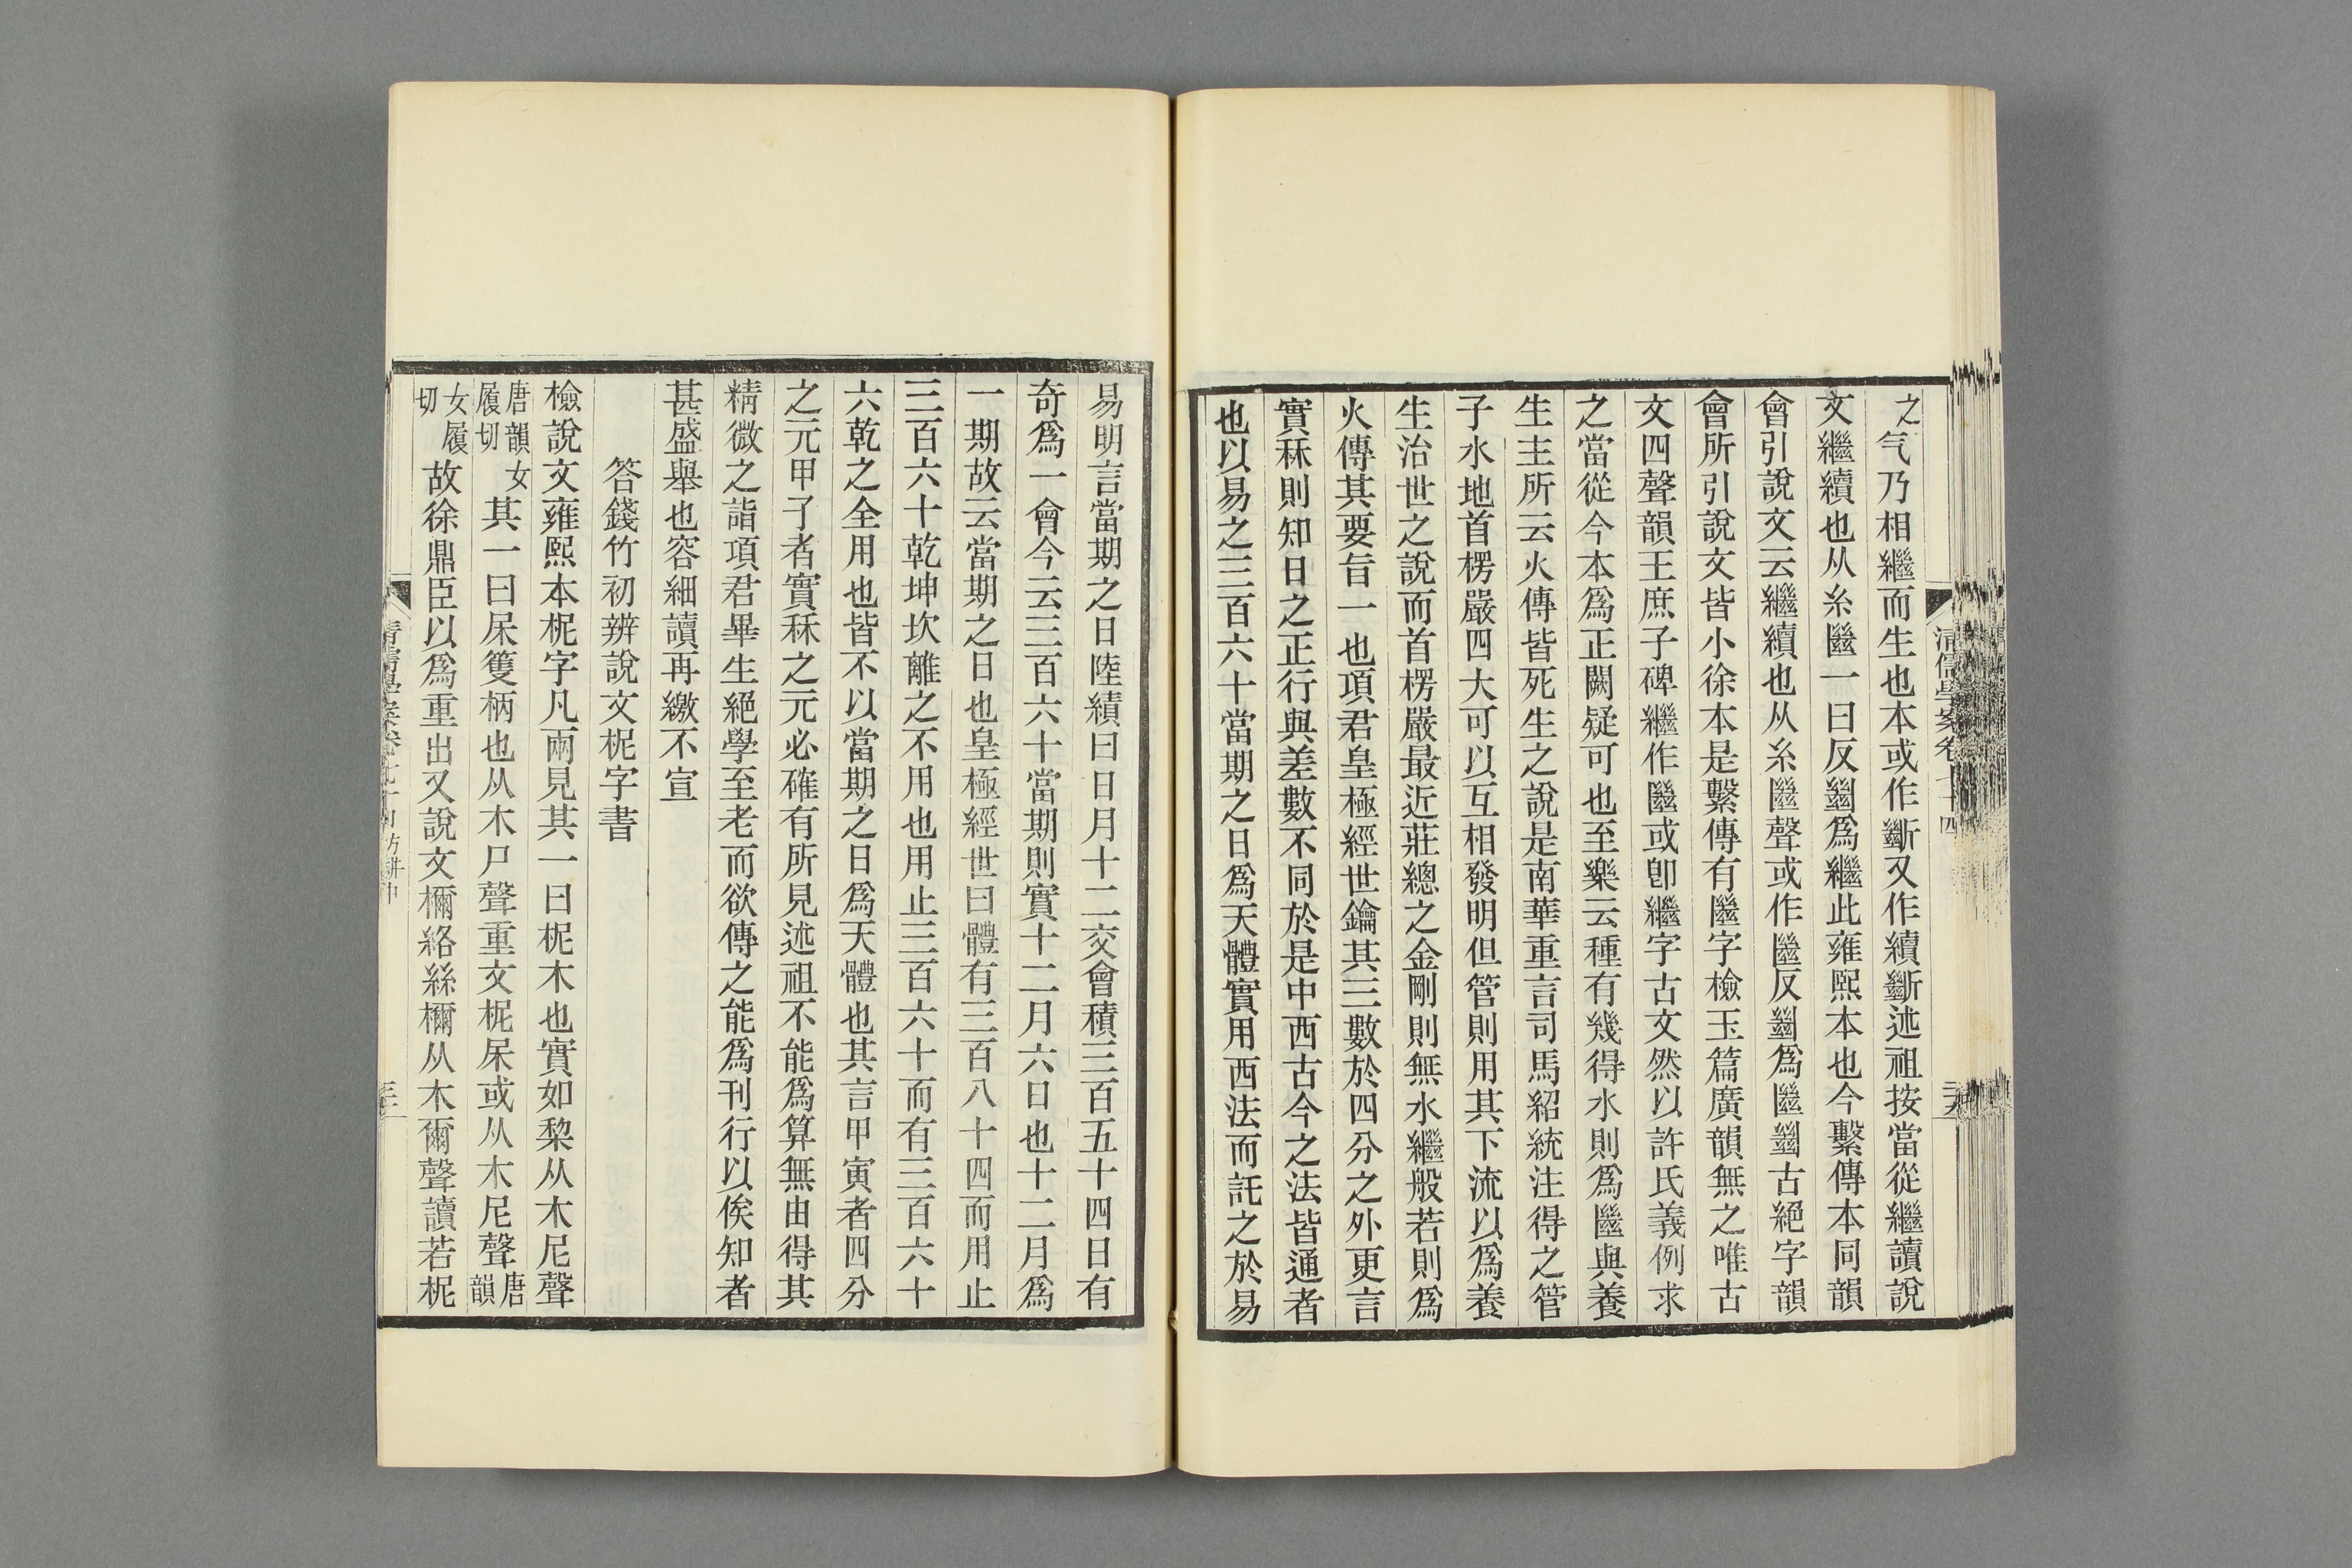 之气乃相繼而生也本或作斷又作續斷述祖按當從繼讀說
文繼續也从糸㡭一曰反𢇍爲繼此雍熙本也今繫傳本同韻
會引說文云繼續也从糸㡭聲或作㡭反𢇍爲㡭𢇍古絕字韻
會所引說文皆小徐本是繫傳有㡭字檢玉篇廣韻無之唯古
文四聲韻王庶子碑繼作㡭或卽繼字古文然以許氏義例求
之當從今本爲正闕疑可也至樂云種有幾得水則爲㡭與養
生主所云火傳皆死生之說是南華重言司馬紹統注得之管
子水地首楞嚴四大可以互相發明但管則用其下流以爲養
生治世之說而首楞嚴最近莊總之金剛則無水繼般若則爲
火傳其要旨一也項君皇極經世鑰其三數於四分之外更言
實秝則知日之正行與差數不同於是中西古今之法皆通者
也以易之三百六十當期之日爲天體實用西法而託之於易
清儒學案卷七十四
易明言當期之日陸績曰日月十二交會積三百五十四日有
奇爲一會今云三百六十當期則實十二月六日也十二月爲
一期故云當期之日也皇極經世曰體有三百八十四而用止
三百六十乾坤坎離之不用也用止三百六十而有三百六十
六乾之全用也皆不以當期之日爲天體也其言甲寅者四分
之元甲子者實秝之元必確有所見述祖不能爲算無由得其
精微之詣項君畢生絕學至老而欲傳之能爲刊行以俟知者
甚盛舉也容細讀再繳不宣
答錢竹初辨說文柅字書
檢說文雍熙本柅字凡兩見其一曰柅木也實如棃从木尼聲
唐韻女履切其一曰㞋籆柄也从木尸聲重文柅㞋或从木尼聲唐韻
女履切故徐鼎臣以爲重出又說文檷絡絲檷从木爾聲讀若柅